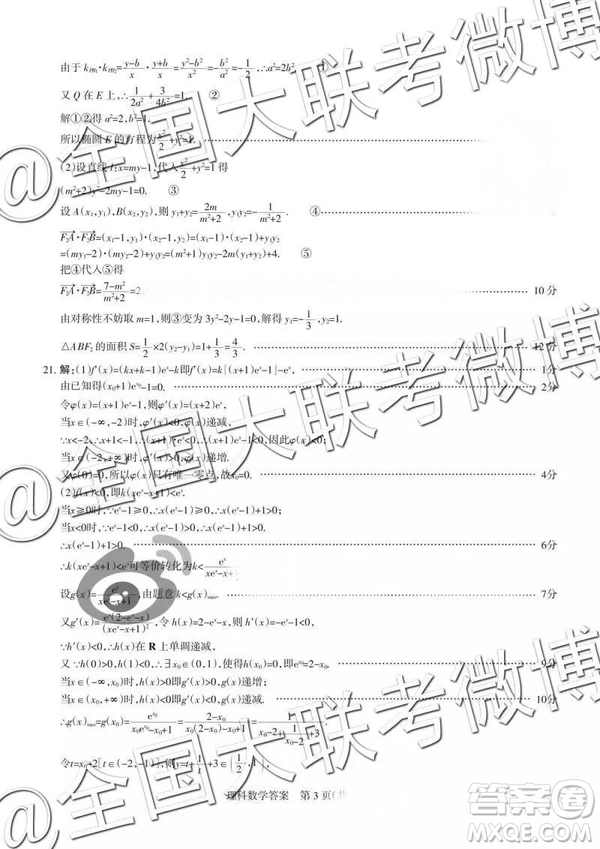 由于 k_{PB1}·k_{PB2}=\frac{y-b}{x}·\frac{y+b}{x}=\frac{y²-b²}{x²}=-\frac{b²}{a²}=-\frac{1}{2},∴a²=2b². ①
又 Q 在 E 上,∴\frac{1}{2a²}+\frac{3}{4b²}=1. ②
解①②得 a²=2,b²=1.
所以椭圆 E 的方程为\frac{x²}{2}+y²=1.
(2)设直线 l:x=my-1,代入\frac{x²}{2}+y²=1得
(m²+2)y²-2my-1=0. ③
设 A(x₁,y₁),B(x₂,y₂),则 y₁+y₂=\frac{2m}{m²+2},y₁y₂=-\frac{1}{m²+2}. ④
F₂A·F₂B=(x₁-1,y₁)·(x₂-1,y₂)=(x₁-1)(x₂-1)+y₁y₂
=(my₁-2)·(my₂-2)+y₁y₂=(m²+1)y₁y₂-2m(y₁+y₂)+4. ⑤
把④代入⑤得
F₂A·F₂B=\frac{7-m²}{m²+2}=2. 10分
由对称性不妨取 m=1,则③变为 3y²-2y-1=0,解得 y₁=-\frac{1}{3},y₂=1.
△ABF₂ 的面积 S=\frac{1}{2}×2(y₂-y₁)=1+\frac{1}{3}=\frac{4}{3}. 12分
21. 解:(1)f′(x)=(kx+k-1)eˣ-k即f′(x)=k[(x+1)eˣ-1]-eˣ. 1分
由已知得(x₀+1)e^{x₀}-1=0.
令φ(x)=(x+1)eˣ-1,则φ′(x)=(x+2)eˣ.
当x∈(-∞,-2)时,φ′(x)<0,φ(x)递减.
∵x<-2,∴x+1<0,∴(x+1)·eˣ<0,因此φ(x)<0;
当x∈(-2,+∞)时,φ′(x)>0,φ(x)递增.
又φ(0)=0,所以φ(x)只有唯一零点,故x₀=0. 4分
(2)f(x)<0,即k(xeˣ-x+1)<eˣ.
当x≥0时,∵eˣ-1≥0,∴x(eˣ-1)≥0,x(eˣ-1)+1>0.
当x<0时,∵eˣ-1<0,∴x(eˣ-1)>0,x(eˣ-1)+1>0.
∴x(eˣ-1)+1>0. 6分
∴k(xeˣ-x+1)<eˣ可等价转化为k<\frac{eˣ}{xeˣ-x+1}.
设g(x)=\frac{eˣ}{xeˣ-x+1},由题意 k<g(x)max. 7分
又g′(x)=\frac{eˣ(2-eˣ-x)}{(xeˣ-x+1)²},令 h(x)=2-eˣ-x,则 h′(x)=-eˣ-1<0,
∵h′(x)<0,∴h(x)在 R 上单调递减.
又∵h(0)>0,h(1)<0,∴∃x₀∈(0,1),使得h(x₀)=0,即e^{x₀}=2-x₀. 9分
当x∈(-∞,x₀)时,h(x)>0,g′(x)>0,g(x)递增;
当x∈(x₀,+∞)时,h(x)<0,g′(x)<0,g(x)递减. 10分
∴g(x)max=g(x₀)=\frac{e^{x₀}}{x₀e^{x₀}-x₀+1}=\frac{2-x₀}{x₀(2-x₀)-x₀+1}=\frac{1}{x₀-2+\frac{1}{x₀-2}+3}
令t=x₀-2[t∈(-2,-1)],则y=t+\frac{1}{t}+3∈(\frac{1}{2},1),
理科数学答案 第 3 页(共
@全国大联考微博
@全国大联考微博
@全国大联考微博
答案圈
MXQE.COM